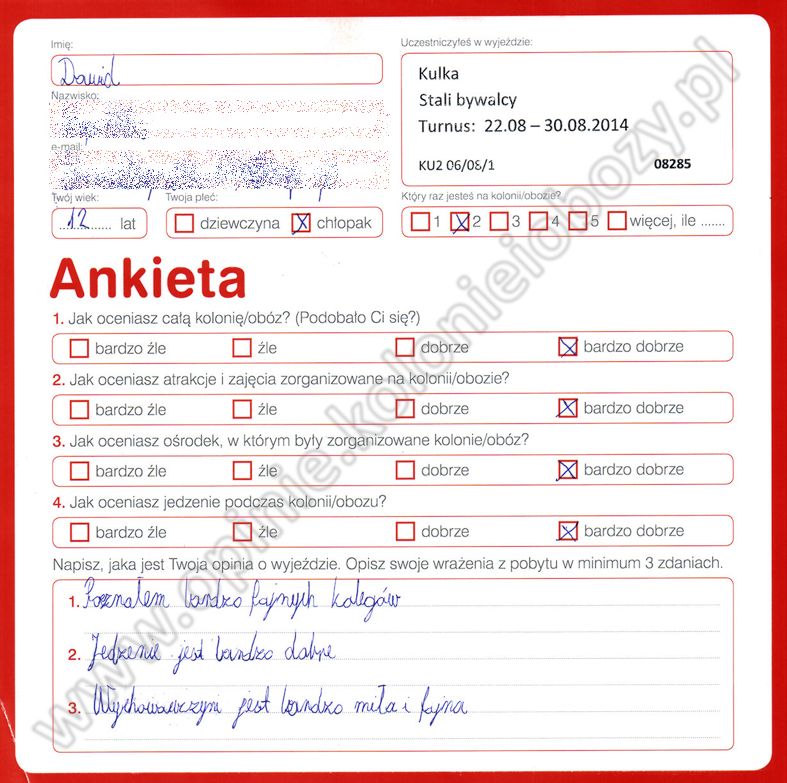 Imię:
Dawid
Nazwisko:
e-mail:
Twój wiek:
12 lat
Twoja płeć:
dziewczyna chłopak
Uczestniczyłeś w wyjeździe:
Kulka
Stali bywalcy
Turnus: 22.08 – 30.08.2014
KU2 06/08/1 08285
Który raz jesteś na kolonii/obozie?
1 2 3 4 5 więcej, ile .......
Ankieta
1. Jak oceniasz całą kolonię/obóz? (Podobało Ci się?)
bardzo źle źle dobrze bardzo dobrze
2. Jak oceniasz atrakcje i zajęcia zorganizowane na kolonii/obozie?
bardzo źle źle dobrze bardzo dobrze
3. Jak oceniasz ośrodek, w którym były zorganizowane kolonie/obóz?
bardzo źle źle dobrze bardzo dobrze
4. Jak oceniasz jedzenie podczas kolonii/obozu?
bardzo źle źle dobrze bardzo dobrze
Napisz, jaka jest Twoja opinia o wyjeździe. Opisz swoje wrażenia z pobytu w minimum 3 zdaniach.
1. Poznałem bardzo fajnych kolegów
2. Jedzenie jest bardzo dobre
3. Wychowawczyni jest bardzo miła i fajna
www.opinie.kolonieiobozy.pl